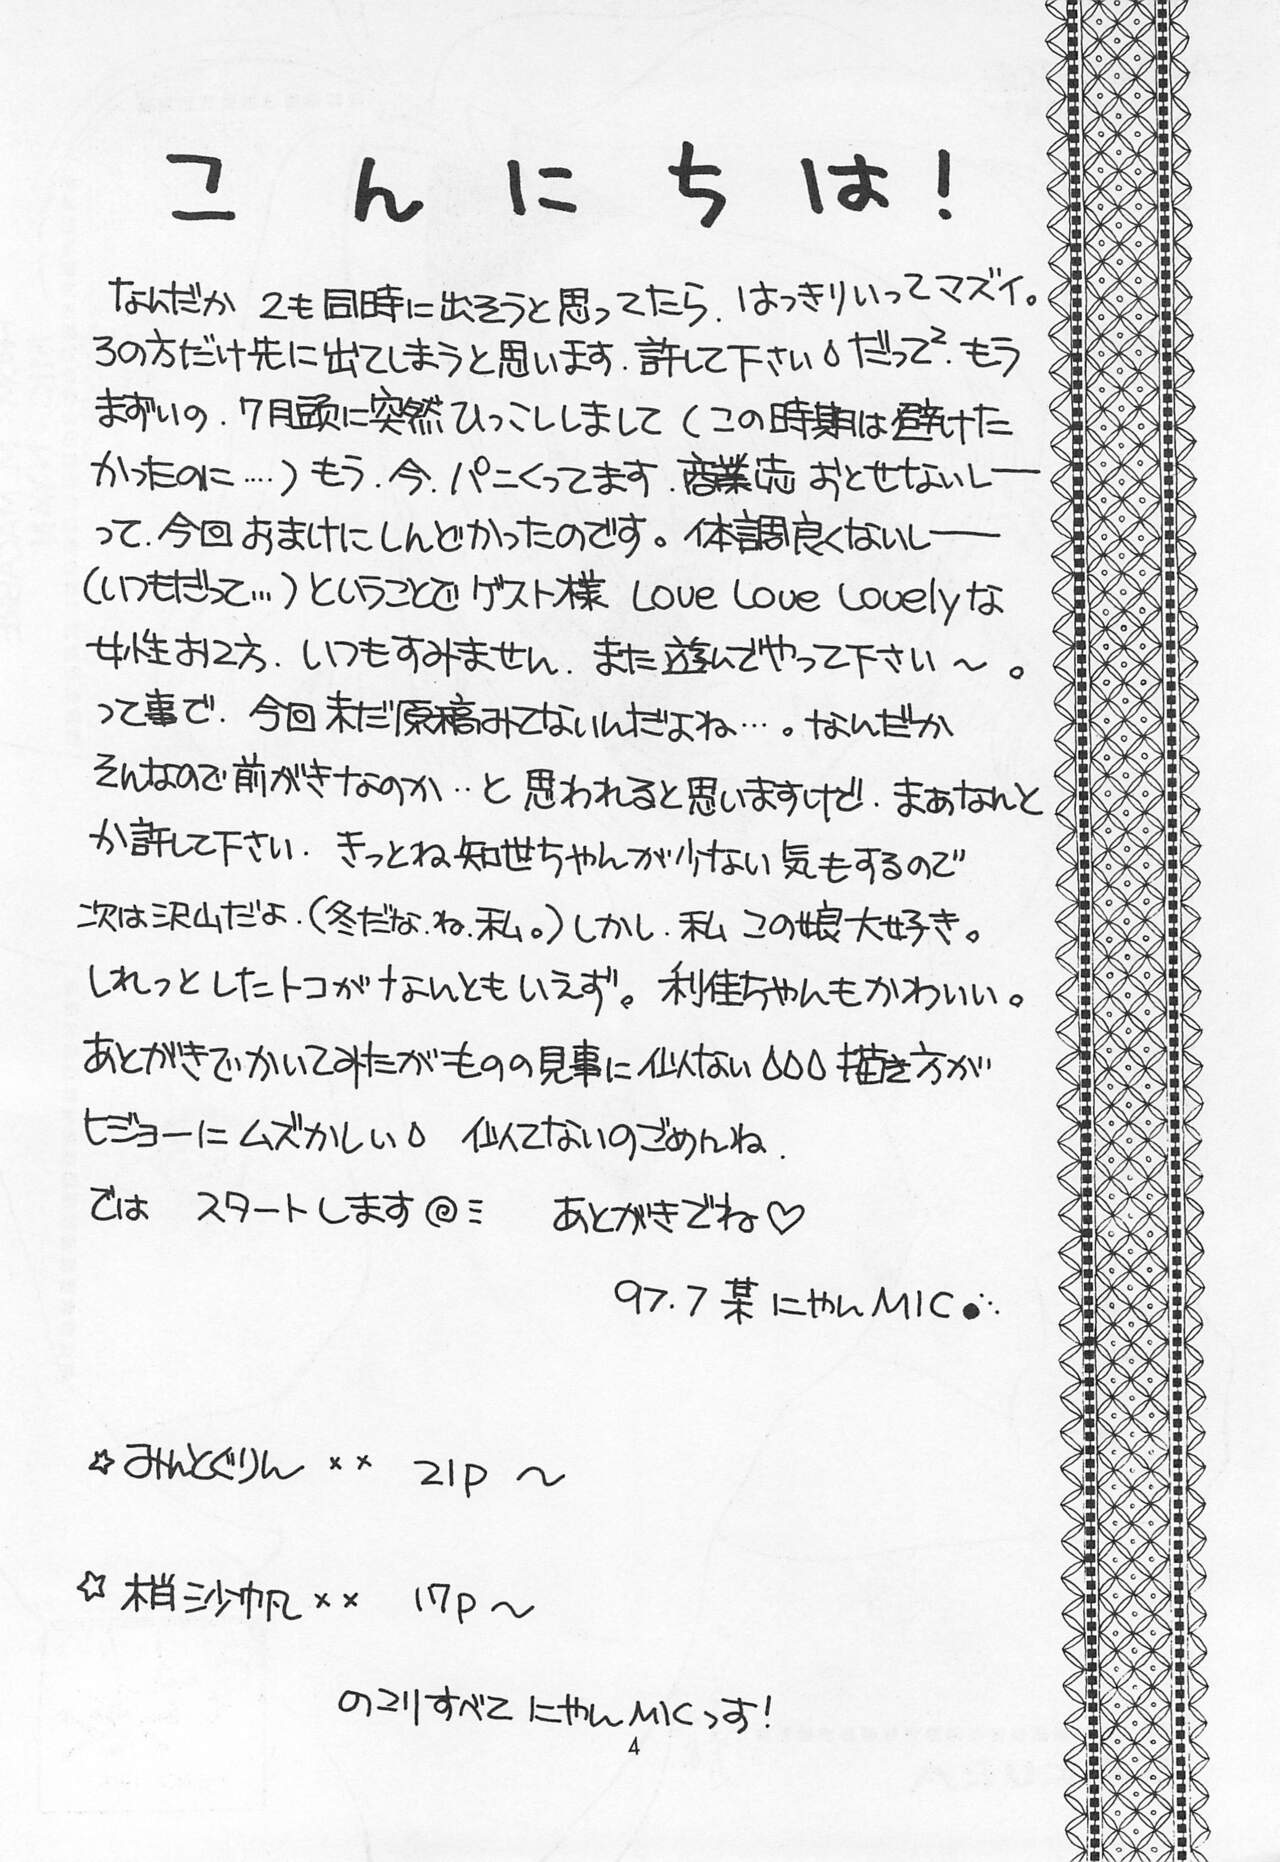 こんにちは!
なんだか 2も同時に出そうと思ってたら、はっきりいってマズイ。
3の方だけ先に出てしまうと思います.許して下さい だって².もう
まずいの.7月頭に突然ひっこししまして(この時期は避けた
かったのに….)もう.今.パニくってます.商業誌おとせないしー
って.今回おまけにしんどかったのです。体調良くないしー
(いつもだって…)ということでゲスト様 Love Love Lovelyな
女性お2方.いつもすみません.また遊んでやって下さい〜。
って事で.今回未だ原稿みてないんだよね…。なんだか
そんなので前がきなのか‥と思われると思いますけど.まぁなんと
か許して下さい.きっとね知世ちゃんが少ない気もするので
次は沢山だよ.(冬だな.ね.私。)しかし.私この娘大好き。
しれっとしたトコがなんともいえず。利佳ちゃんもかわいい。
あとがきでかいてみたがものの見事に似ない 描き方が
ヒジョーにムズかしい 似てないのごめんね.
では スタートします@ミ あとがきでね♡
97.7 某にゃんMIC●∴
☆みんとぐりん×× 21p〜
☆梢沙帆×× 17p〜
のコリすべて にゃんMICっす!
4